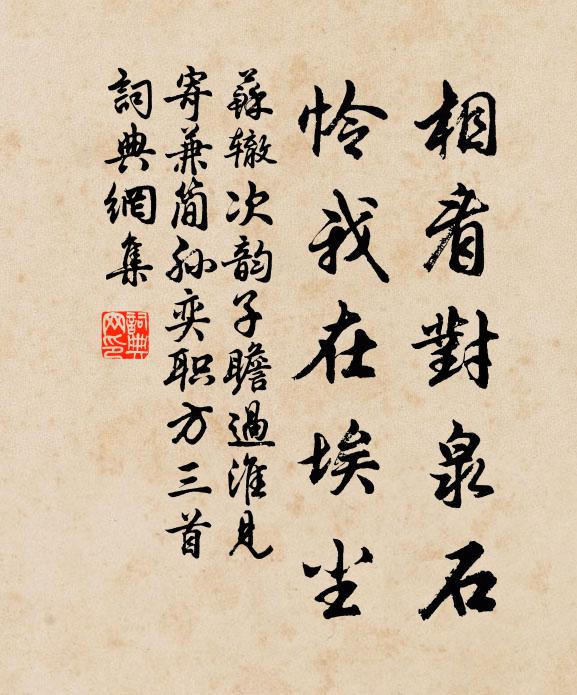 相看對泉石
怜我在埃尘
蘇辙次韵子瞻過淮見
寄兼简孙奕职方三首
詞典網集
詞典網印